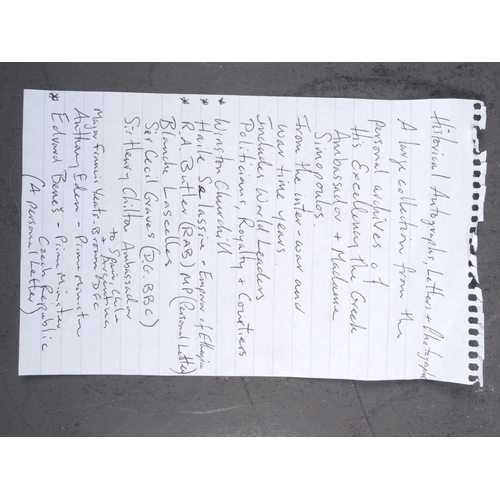 Historical Autographs, Letters + Photographs
A large collection from the
personal archives of
His Excellency the Greek
Ambassador + Madame
Simopoulos.
From the inter-war and
war time years.
includes World Leaders
Politicians, Royalty + Courtiers
* Winston Churchill
* Haile Selassie - Emperor of Ethiopia
* R.A. Butler (RAB) MP (Personal Letter)
Blanche Lascelles
Sir Cecil Graves (D.G. BBC)
Sir Henry Chilton Ambassador
to Spain, Chile
+ Argentina
Major Francis Yeats-Brown DFC
Anthony Eden - Prime Minister
* Edvard Beneš - Prime Minister
Czech Republic
(A personal Letter)